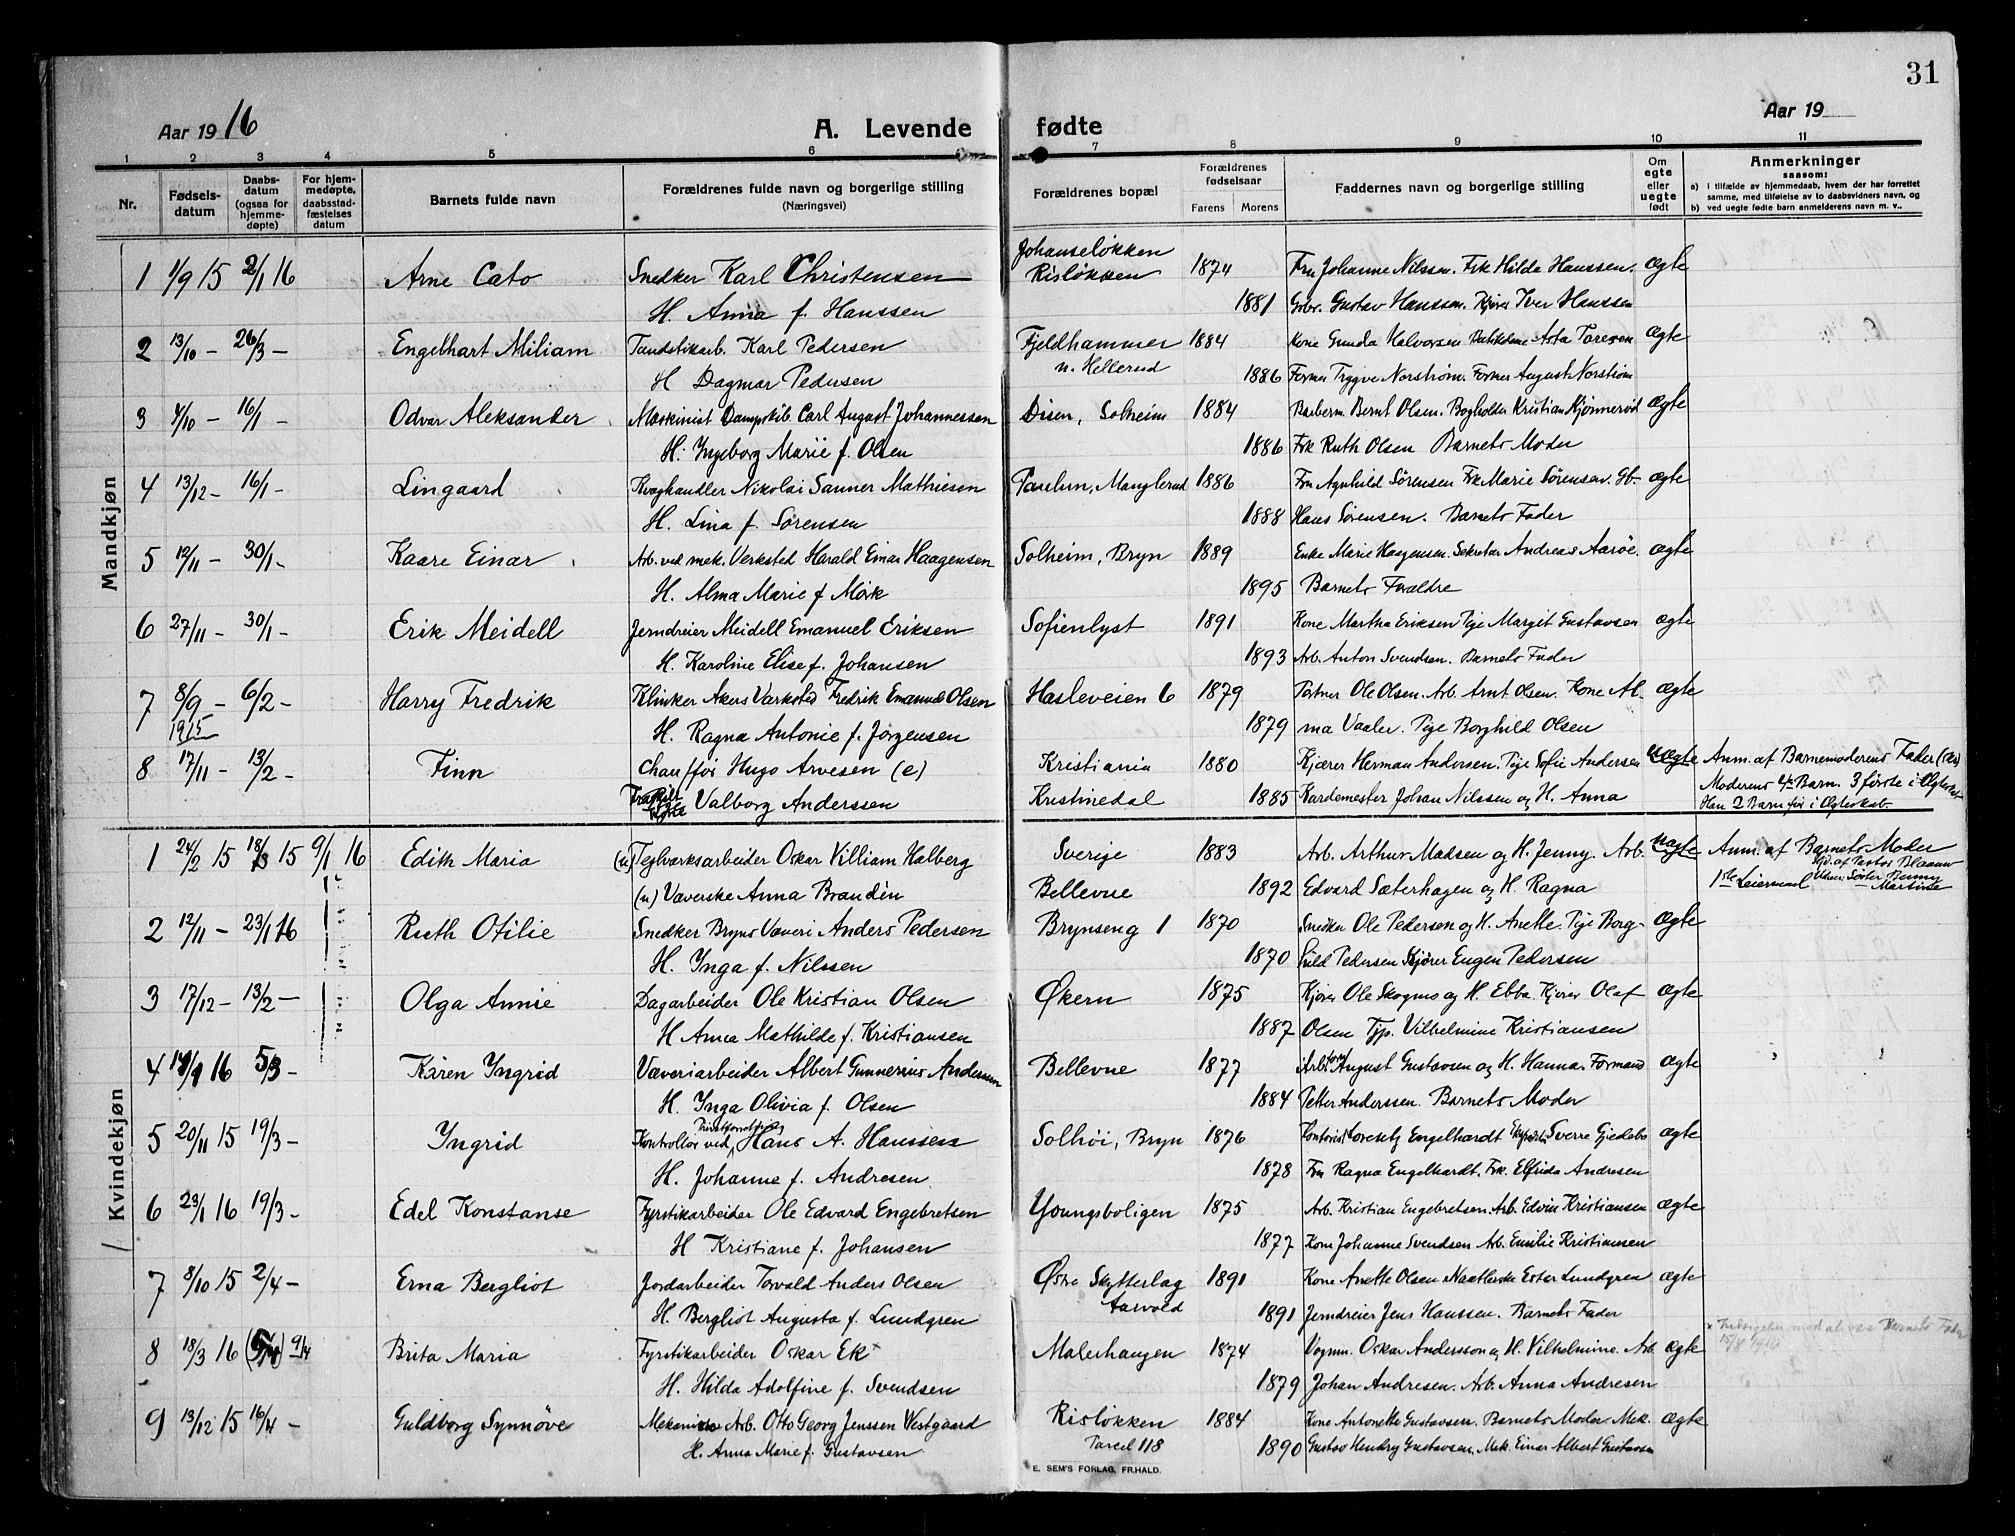 31
Aar 1916
A. Levende fødte
Aar 19
1 2 3 4 5 6 7 8 9 10 11
Nr.
Fødsels-
datum
Daabs-
datum
(ogsaa for
hjemme-
døpte)
For hjem-
medøpte,
daabsstad-
fæstelses
datum
Barnets fulde navn
Forældrenes fulde navn og borgerlige stilling
(Næringsvei)
Forældrenes bopæl
Forældrenes
fødselsaar
Farens Morens
Faddernes navn og borgerlige stilling
Om
egte
eller
uegte
født
Anmerkninger
saasom:
a) I tilfælde av hjemmedaab, hvem der har forrettet
samme, med tilføielse av to daabsvidners navn, og
b) ved uegte fødte barn anmelderens navn m. v..
Mandkjøn
1 1/9 15 2/1 16 Arne Cato Snedker Karl Christensen Johanseløkken Risløkken 1874 Fru Johanne Nilssen. Frk Hilda Hanssen. Ægte
H. Anna f. Hanssen 1881 Grbr. Gustav Hanssen. Kjører Iver Hanssen
2 13/10 – 26/3 – Engelhart Miliam Tandstikarb. Karl Pedersen Fjeldhammer 1884 Kone Gunda Halvorsen Asta Ægte
H Dagmar Pedersen n. Hellerud 1886 Former Trygve Norstrøm. Former August Norstrøm
3 4/10 – 16/1 – Odvar Aleksander Maskinist Dampskib. Carl August Johannessen Disen, Solheim 1884 Barberm. Bernt Olsen. Bogholder Kristian Kjønnerød Ægte
H. Ingeborg Marie f. Olsen 1886 Frk Ruth Olsen Barnets Moder
4 13/12 – 16/1 – Lingaard Kvæghandler Nikolai Sanner Mathiesen Manglerud 1886 Fru Agnhild Sørensen Frk Marie Sørensen. Gb- Ægte
H. Lina f. Sørensen 1888 Hans Sørensen. Barnets Fader
5 12/11 – 30/1 – Kaare Einar Arb. ved mek. Verksted Harald Einar Haagensen Solheim, Bryn 1889 Enke Marie Haagensen. Sekretær Andreas Aarøe. Ægte
H. Alma Marie f Mørk 1895 Barnets Forældre
6 27/11 – 30/1 – Erik Meidell Jerndreier Meidell Emanuel Eriksen Sofienlyst 1891 Kone Martha Eriksen Pige Margit Gustavsen Ægte
H. Karoline Elise f. Johansen 1893 Arb. Anton Svendsen. Barnets Fader
7 8/9 – 6/2 – Harry Fredrik Klinker Akers Værksted Fredrik Emanuel Olsen Hasleveien 6 1879 Ole Olsen. Arb. Arnt Olsen. Kone Al- Ægte
1915 H. Ragna Antonie f. Jørgensen 1879 ma Vaaler. Pige Borghild Olsen
8 17/11 – 13/2 – Finn Chauffør Hugo Arvesen (e) Kristiania 1880 Kjører Herman Andersen. Pige Sofie Andersen Uægte Anm. af Barnemoderens Fader
Valborg Anderssen Kristinedal 1885 Kardemester Johan Nilssen og H. Anna Moderens 4de Barn. 3 første i Ægteskab
Han 2 Barn før i Ægteskab
Kvindekjøn
1 24/2 15 18/3 15 9/1 16 Edith Maria (u) Teglværksarbeider Oskar Villiam Halberg Sverige 1883 Arb. Arthur Madsen og H. Jenny. Arb. Uægte Anm. af Barnets Moder
(u) Væverske Anna Brandén Bellevue 1892 Edvard Sæterhagen og H. Ragna 1ste Leiermaal
2 12/11 – 23/1 16 Ruth Otilie Snedker Bryns Væveri Anders Pedersen Brynseng 1 1870 Snedker Ole Pedersen og H. Anette. Pige Borg- Ægte
H. Inga f. Nilssen 1870 hild Pedersen Kjører Eugen Pedersen
3 17/12 – 13/2 – Olga Annie Dagarbeider Ole Kristian Olsen Økern 1875 Kjører Ole Skogmo og H. Ebba. Kjører Olaf Ægte
H Anna Mathilde f. Kristiansen 1887 Olsen Typ. Vilhelmine Kristiansen
4 16 5/3 – Karen Ingrid Væveriarbeider Albert Gunnerius Andersen Bellevue 1877 Arb. August Gustavsen og H. Hanna. Formand Ægte
H. Inga Olivia f. Olsen 1884 Petter Anderssen. Barnets Moder
5 20/11 15 19/3 – Ingrid Kontrollør ved Hans A. Hanssen Solhøi, Bryn 1876 Kontorist Engelhardt Sverre Gjedebo Ægte
H. Johanne f. Andresen 1878 Fru Ragna Engelhardt. Frk. Elfrida Andresen
6 23/1 16 19/3 – Edel Konstanse Fyrstikarbeider Ole Edvard Engebretsen Youngsboligen 1875 Arb. Kristian Engebretsen. Arb. Edvin Kristiansen Ægte
H Kristiane f. Johansen 1877 Kone Johanne Svendsen Arb. Emilie Kristiansen
7 8/10 15 2/4 – Erna Bergliot Jordarbeider Torvald Anders Olsen Østre Skytterlag 1891 Kone Anette Olsen Ester Lundgren Ægte
H. Bergliot Augusta f. Lundgren Aarvold 1891 Jerndreier Jens Hanssen. Barnets Fader
8 18/3 16 9/4 Brita Maria Fyrstikarbeider Oskar Ek × Malerhaugen 1874 Vognm. Oskar Andersson og H. Vilhelmine. Arb. Ægte
H. Hilda Adolfine f. Svendsen 1879 Johan Andresen. Arb. Anna Andresen
9 13/12 15 16/4 – Guldborg Synnøve Mekaniker Arb. Otto Georg Jenssen Vestgaard Risløkken 1884 Kone Antonette Gustavsen. Barnets Moder. Mek. Ægte
H. Anna Marie f. Gustavsen Parcel 118 1890 Gustav Henry Gustavsen. Mek. Einar Albert Gustavsen
E. SEM'S FORLAG, FR.HALD.